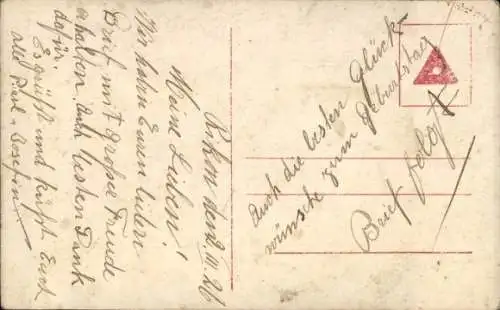 den 2. III. 26
Meine Lieben!
Wir haben Euren lieben
Brief mit großer Freude
erhalten, auch besten Dank
dafür.
Es grüßt und küßt Euch
alle
Auch die besten Glück-
wünsche zum Geburtstag
Brief folgt